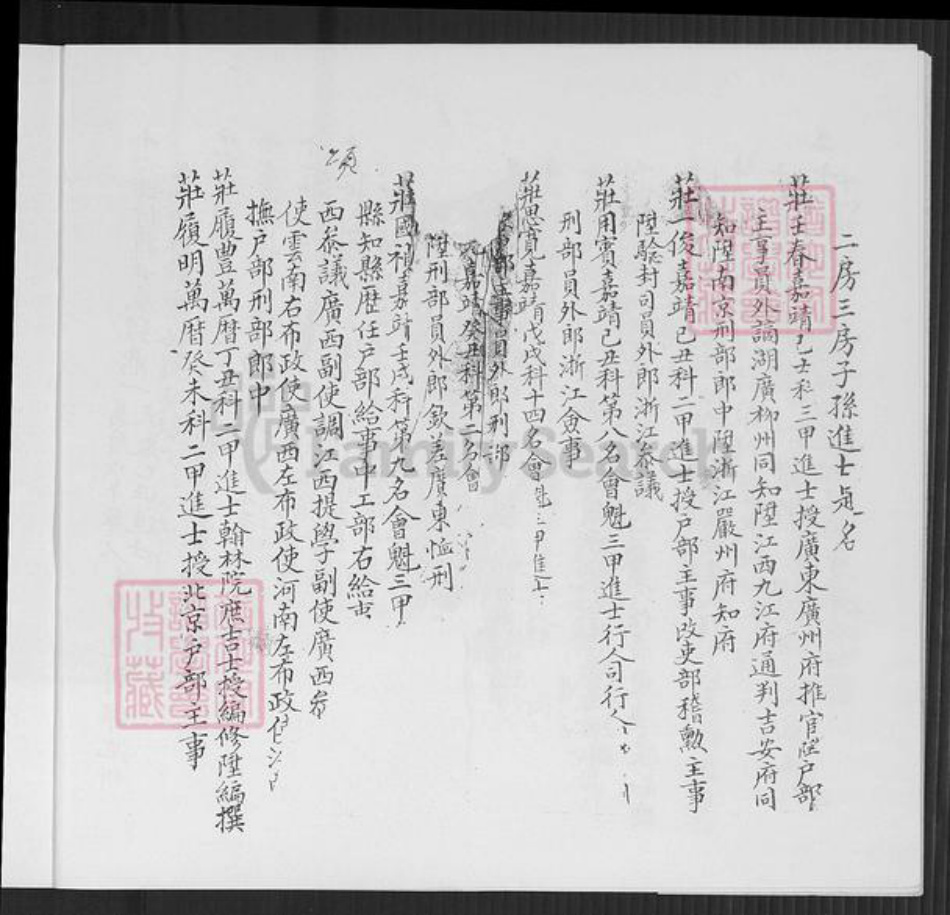 二房三房子孫進士題名
莊壬春嘉靖己丑科三甲進士授廣東廣州府推官陞戶部
主事員外謫湖廣柳州同知陞江西九江府通判吉安府同
知陞南京刑部郎中陞浙江嚴州府知府
莊一俊嘉靖己丑科二甲進士授戶部主事改吏部稽勲主事
陞驗封司員外郎浙江叅議
莊用賓嘉靖己丑科第八名會魁三甲進士行人司行人
刑部員外郎浙江僉事
莊思寬嘉靖戊戌科十四名會魁三甲進士
員外郎刑部
嘉靖癸丑科第二名會
陞刑部員外郎欽差廣東恤刑
莊國禎嘉靖壬戌科第九名會魁三甲
縣知縣歷任戶部給事中工部右給事
西叅議廣西副使調江西提學副使廣西叅
使雲南右布政使廣西左布政使河南左布政使
撫戶部刑部郎中
莊履豊萬曆丁丑科二甲進士翰林院庶吉士授編修陞編撰
莊履明萬曆癸未科二甲進士授北京戶部主事
FamilySearch